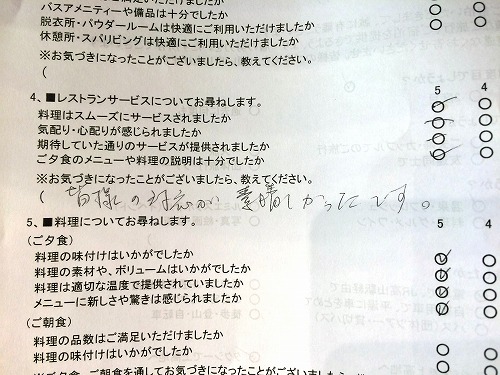 バスアメニティーや備品は十分でしたか
脱衣所・パウダールームは快適にご利用いただけましたか
休憩所・スパリビングは快適にご利用いただけましたか
※お気づきになったことがございましたら、教えてください。
(
5 4
4、■レストランサービスについてお尋ねします。
料理はスムーズにサービスされましたか
気配り・心配りが感じられましたか
期待していた通りのサービスが提供されましたか
ご夕食のメニューや料理の説明は十分でしたか
※お気づきになったことがございましたら、教えてください。
( 皆様の対応が素晴しかったです。
5、■料理についてお尋ねします。 5 4
(ご夕食)
料理の味付けはいかがでしたか
料理の素材や、ボリュームはいかがでしたか
料理は適切な温度で提供されていましたか
メニューに新しさや驚きは感じられましたか
(ご朝食)
料理の品数はご満足いただけましたか
料理の味付けはいかがでしたか